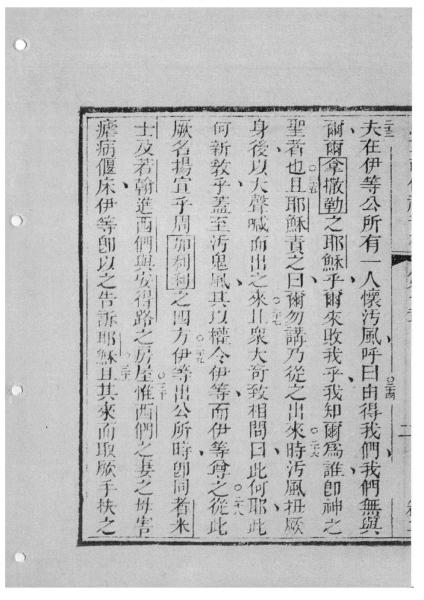 夫在伊等公所有一人懷汚風呼曰由得我們我們無與
爾爾拿撒勒之耶穌乎爾來敗我乎我知爾爲誰卽神之
聖者也且耶穌責之曰爾勿講乃從之出來時汚風扭厥
身後以大聲喊而出之來且衆大奇致相問曰此何耶此
何新敎乎蓋至汚鬼風其以權令伊等而伊等尊之從此
厥名揚宣乎周加利利之四方伊等出公所時卽同者米
士及若翰進西們與安得路之房屋惟西們之妻之母害
瘧病偃床伊等卽以之告訴耶穌且其來而取厥手扶之